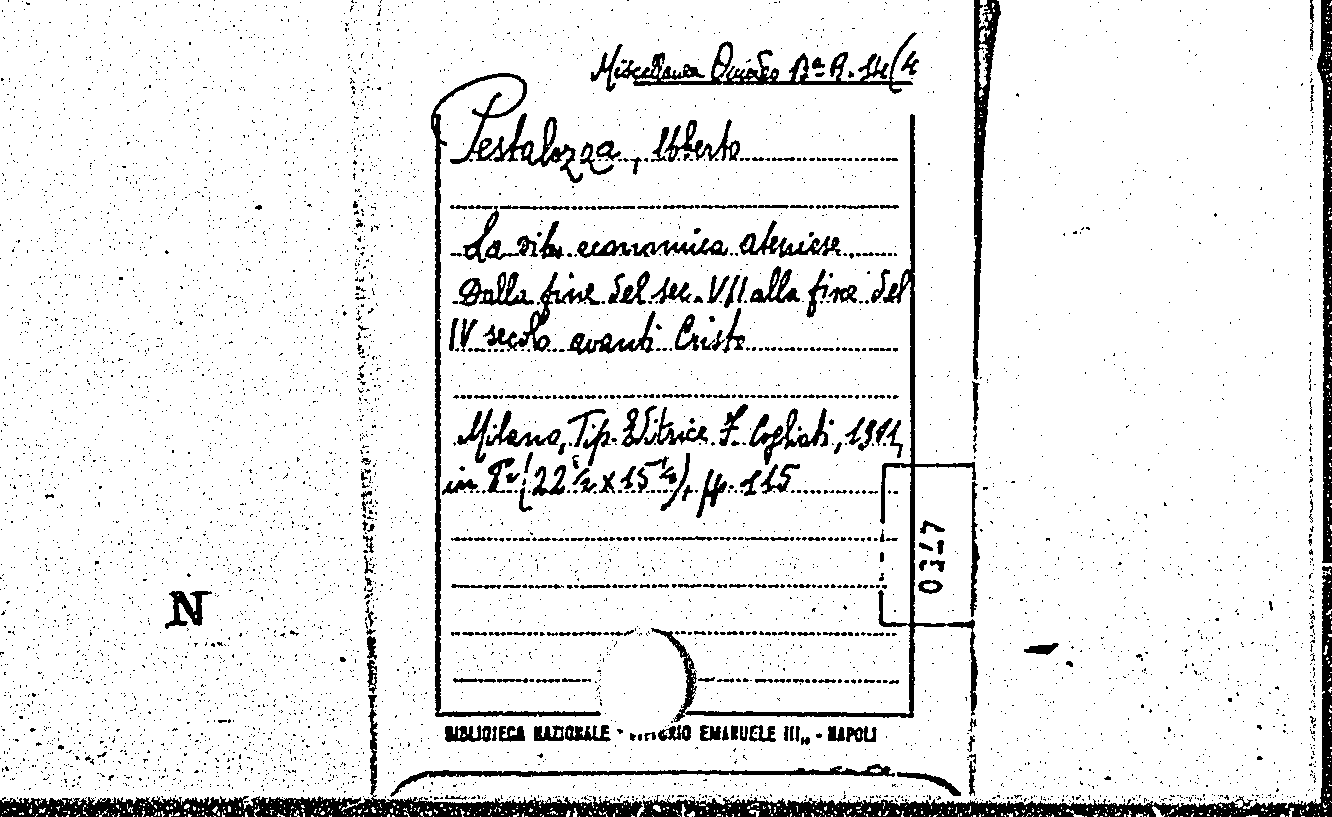 Miscellanea Ovidio Bª A. 14(4
Pestalozza, Uberto
La vita economica ateniese
Dalla fine del sec. VII alla fine del
IV secolo avanti Cristo
Milano, Tip. Editrice F. Cogliati, 1901,
in 8º (22 ½ x 15 ½), pp. 115
0347
N
BIBLIOTECA NAZIONALE "VITTORIO EMANUELE III„ - NAPOLI